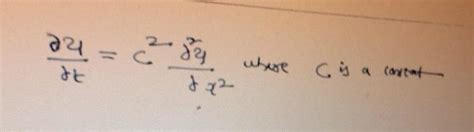 ∂u/∂t = c² ∂²u/∂x² where C is a constant